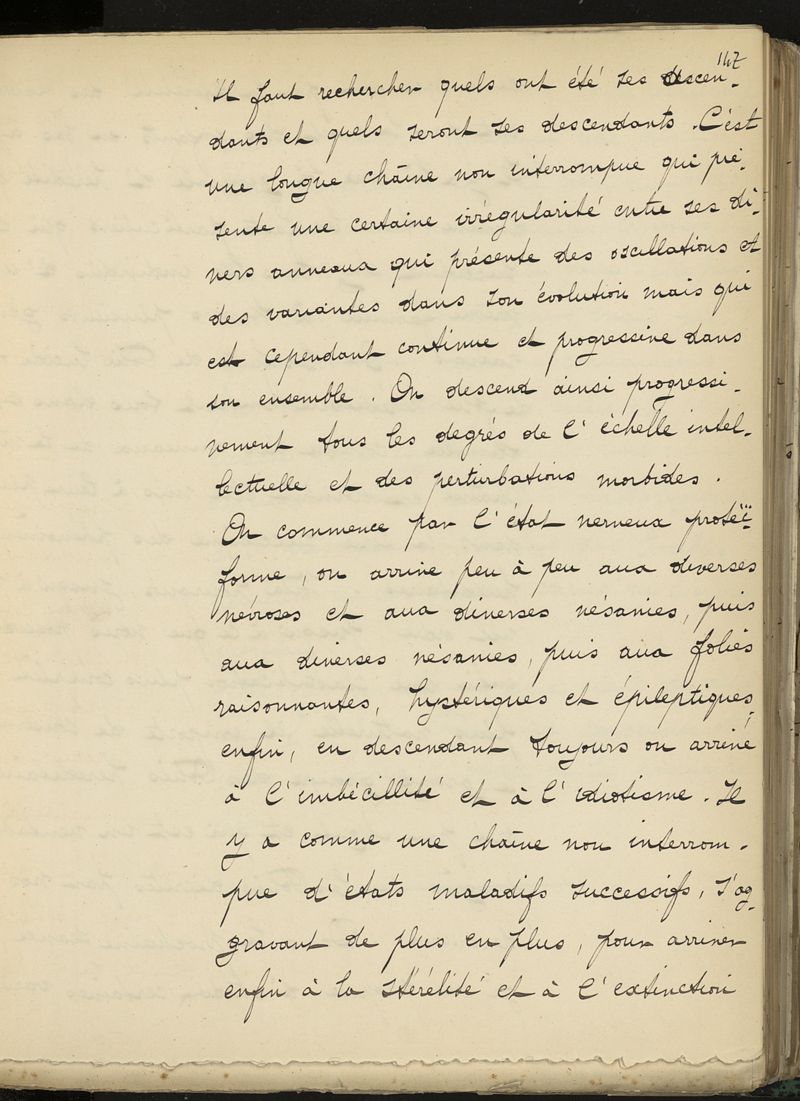 147
Il faut rechercher quels ont été ses descen-
dants et quels seront ses descendants. C'est
une longue chaîne non interrompue qui pré-
sente une certaine irrégularité entre ses di-
vers anneaux qui présente des oscillations et
des variantes dans son évolution mais qui
est cependant continue et progressive dans
son ensemble. On descend ainsi progressi-
vement tous les degrés de l'échelle intel-
lectuelle et des perturbations morbides.
On commence par l'état nerveux protéi-
forme, on arrive peu à peu aux diverses
névroses et aux diverses vésanies, puis
aux diverses vésanies, puis aux folies
raisonnantes, hystériques et épileptiques,
enfin, en descendant toujours on arrive
à l'imbécillité et à l'idiotisme. Il
y a comme une chaîne non interrom-
pue d'états maladifs successifs, s'ag-
gravant de plus en plus, pour arriver
enfin à la stérélité et à l'extinction